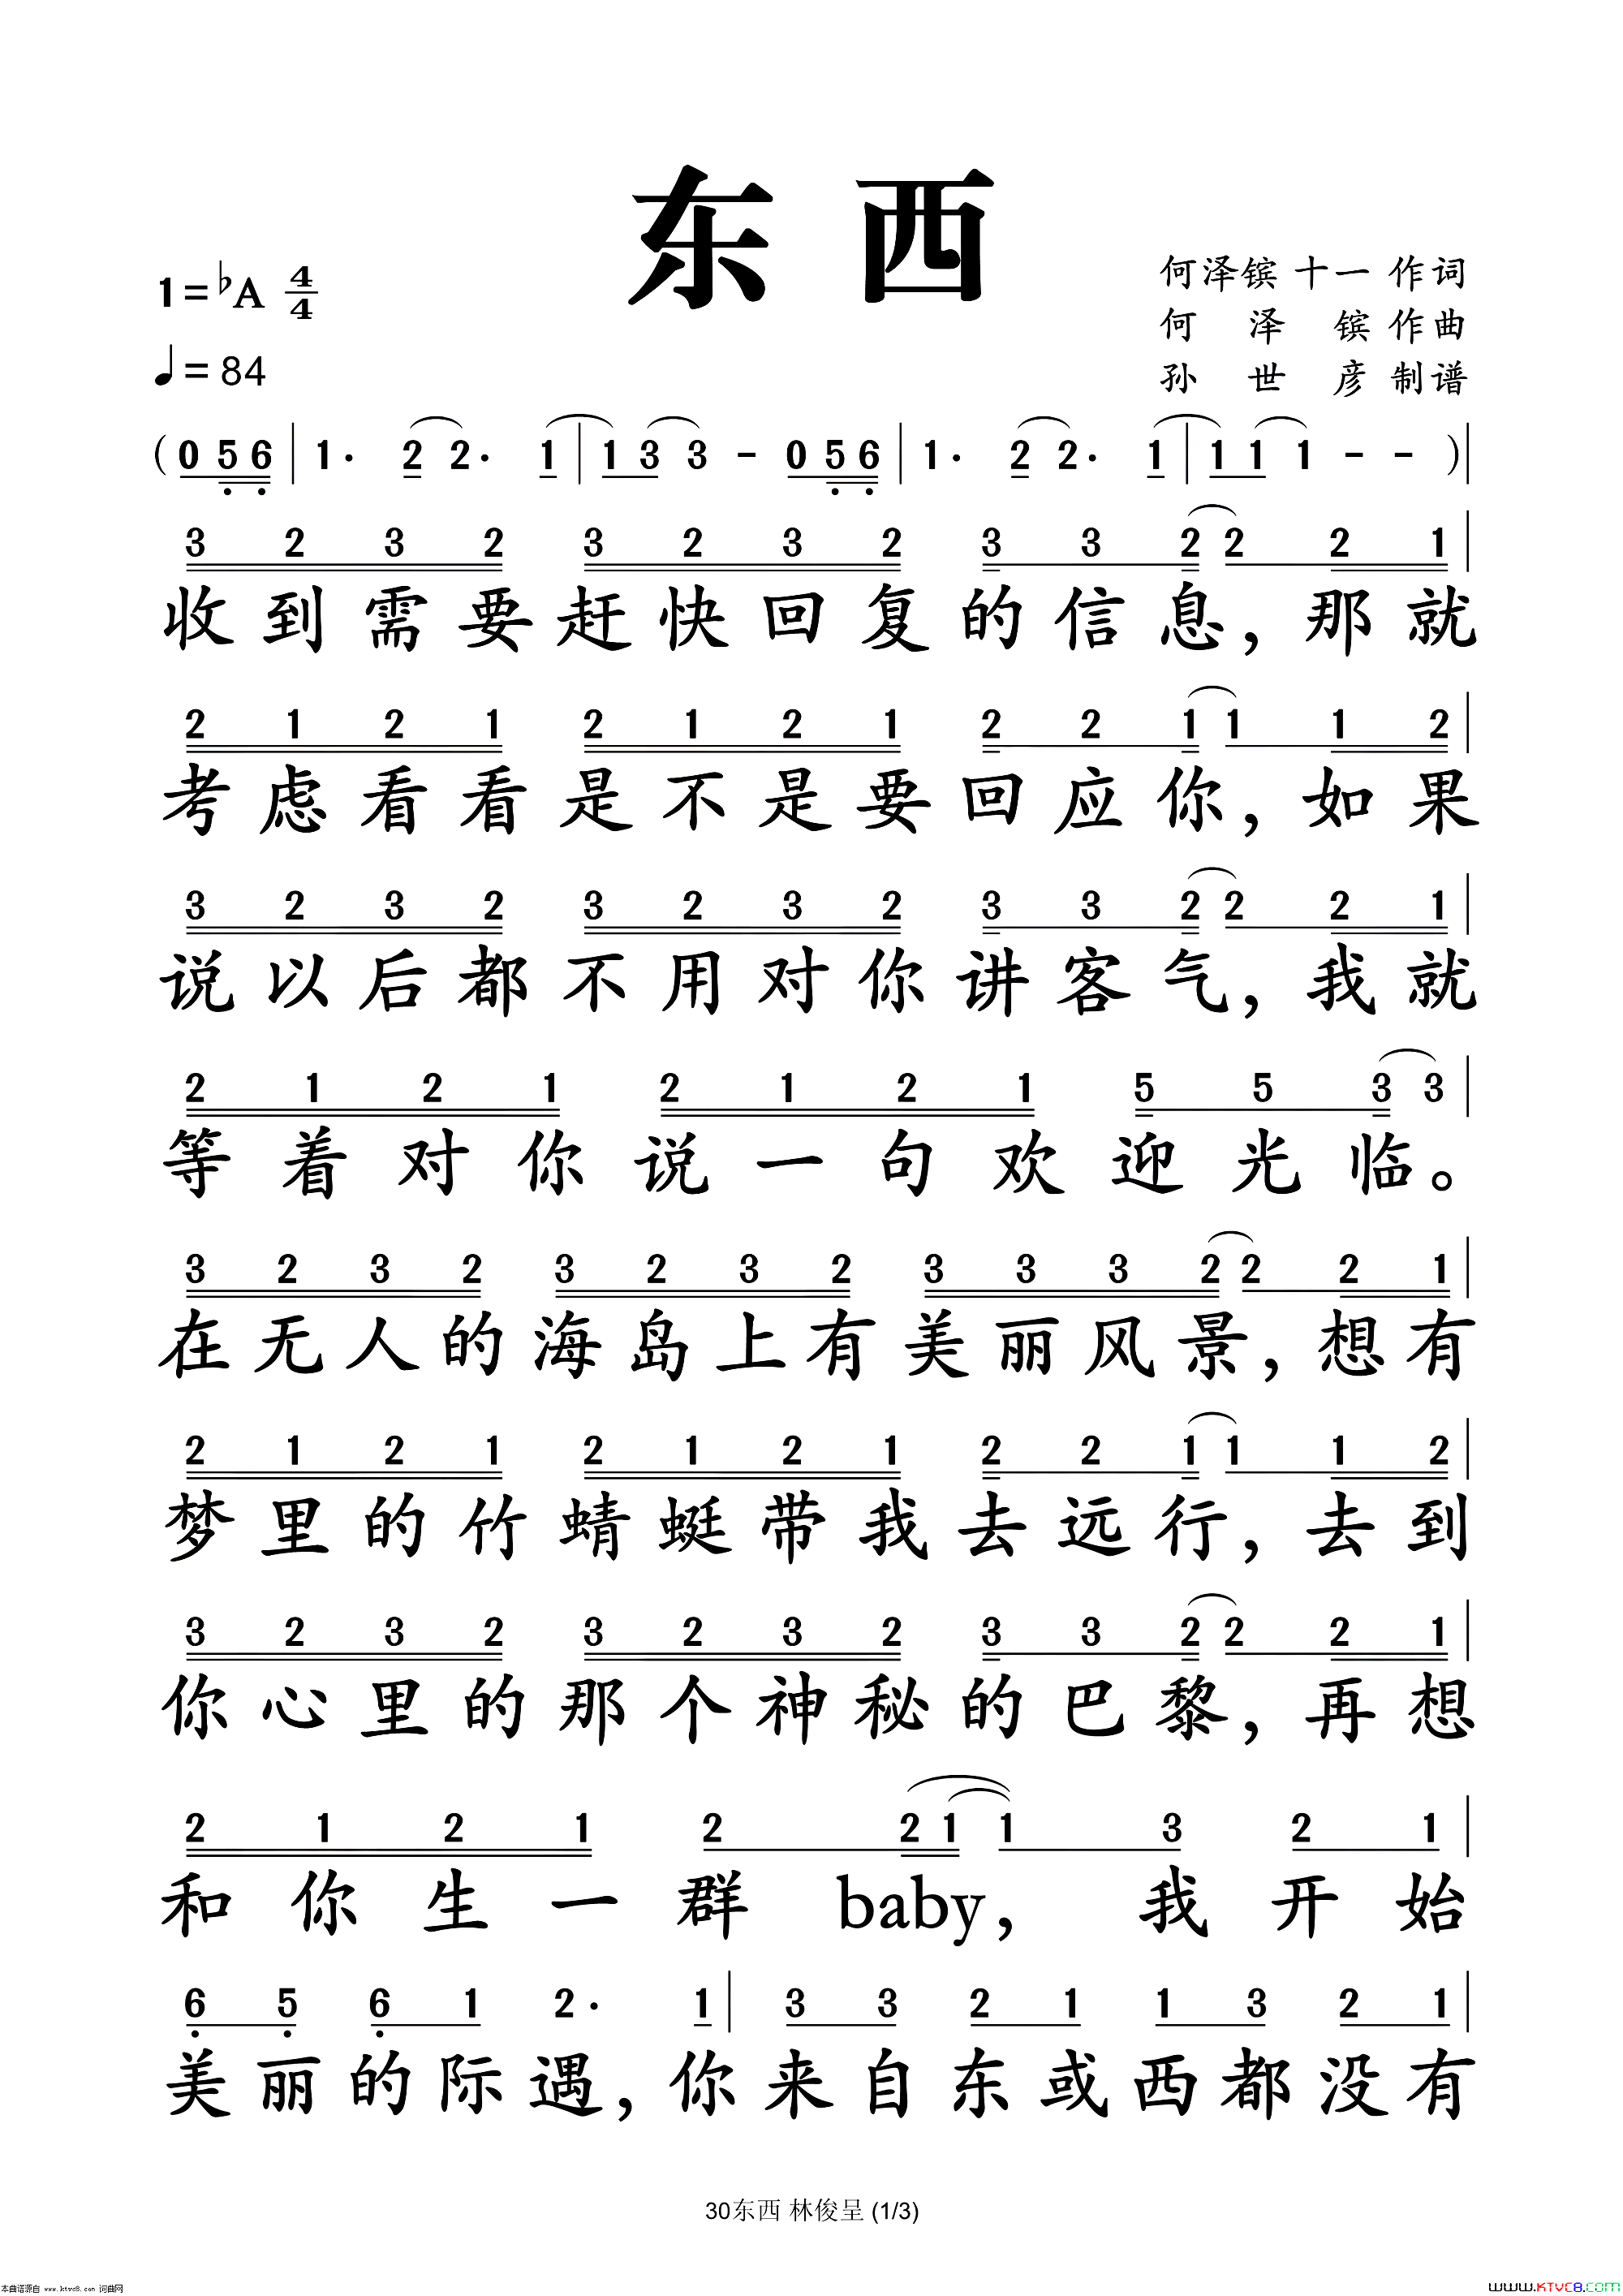 东 西
1=♭A 4/4
何泽镔 十一 作词
何 泽 镔 作曲
♩= 84
孙 世 彦 制谱
(0 5 6 | 1. 2 2. 1 | 1 3 3 - 0 5 6 | 1. 2 2. 1 | 1 1 1 - - )|
3 2 3 2 3 2 3 2 3 3 2 2 2 1 |
收到需要赶快回复的信息，那就
2 1 2 1 2 1 2 1 2 2 1 1 1 2 |
考虑看看是不是要回应你，如果
3 2 3 2 3 2 3 2 3 3 2 2 2 1 |
说以后都不用对你讲客气，我就
2 1 2 1 2 1 2 1 5 5 3 3 |
等着对你说一句欢迎光临。
3 2 3 2 3 2 3 2 3 3 3 2 2 2 1 |
在无人的海岛上有美丽风景，想有
2 1 2 1 2 1 2 1 2 2 1 1 1 2 |
梦里的竹蜻蜓带我去远行，去到
3 2 3 2 3 2 3 2 3 3 2 2 2 1 |
你心里的那个神秘的巴黎，再想
2 1 2 1 2 2 1 1 3 2 1 |
和你生一群 baby，我开始
6 5 6 1 2. 1 | 3 3 2 1 1 3 2 1 |
美丽的际遇，你来自东或西都没有
30东西 林俊呈 (1/3)
本曲谱源自 www.ktvc8.com 词曲网
WWW.KTVC8.COM